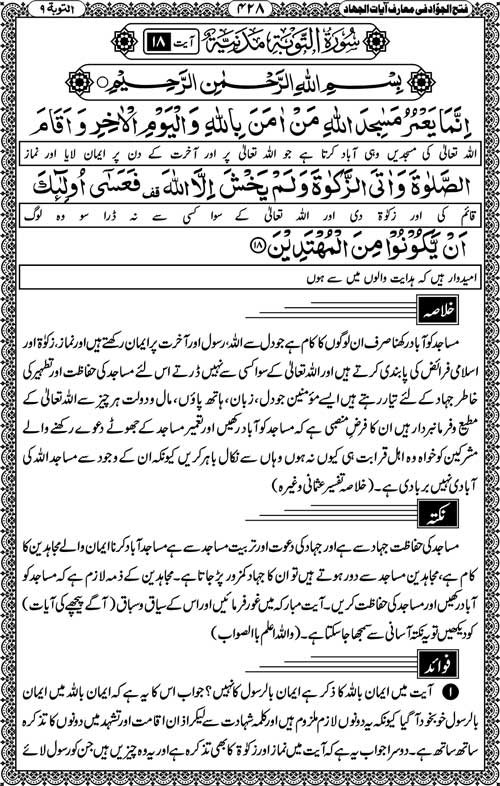 فتح الجوّاد فی معارف آیات الجهاد ۴۲۸ التوبة ۹
سُوْرَةُ التَّوْبَةِ مَدَنِیَّةٌ آیت ۱۸
بِسْمِ اللهِ الرَّحْمٰنِ الرَّحِیْمِ
اِنَّمَا یَعْمُرُ مَسٰجِدَ اللهِ مَنْ اٰمَنَ بِاللهِ وَالْیَوْمِ الْاٰخِرِ وَاَقَامَ
اللہ تعالیٰ کی مسجدیں وہی آباد کرتا ہے جو اللہ تعالیٰ پر اور آخرت کے دن پر ایمان لایا اور نماز
الصَّلٰوةَ وَاٰتَی الزَّکٰوةَ وَلَمْ یَخْشَ اِلَّا اللهَ قف فَعَسٰٓی اُولٰٓئِكَ
قائم کی اور زکوٰۃ دی اور اللہ تعالیٰ کے سوا کسی سے نہ ڈرا سو وہ لوگ
اَنْ یَّکُوْنُوْا مِنَ الْمُهْتَدِیْنَ ﴿۱۸﴾
امیدوار ہیں کہ ہدایت والوں میں سے ہوں
خلاصہ
مساجد کو آباد رکھنا صرف ان لوگوں کا کام ہے جو دل سے اللہ، رسول اور آخرت پر ایمان رکھتے ہیں اور نماز، زکوٰۃ اور
اسلامی فرائض کی پابندی کرتے ہیں اور اللہ تعالیٰ کے سوا کسی سے نہیں ڈرتے اس لئے مساجد کی حفاظت اور تطہیر کی
خاطر جہاد کے لئے تیار رہتے ہیں ایسے مؤمنین جو دل، زبان، ہاتھ پاؤں، مال و دولت ہر چیز سے اللہ تعالیٰ کے
مطیع و فرمانبردار ہیں ان کا فرض منصبی ہے کہ مساجد کو آباد رکھیں اور تعمیر مساجد کے جھوٹے دعوے رکھنے والے
مشرکین کو خواہ وہ اہل قرابت ہی کیوں نہ ہوں وہاں سے نکال باہر کریں کیونکہ ان کے وجود سے مساجد اللہ کی
آبادی نہیں بربادی ہے۔ (خلاصہ تفسیر عثمانی وغیرہ)
نکتہ
مساجد کی حفاظت جہاد سے ہے اور جہاد کی دعوت اور تربیت مساجد سے ہے مساجد آباد کرنا ایمان والے مجاہدین کا
کام ہے، مجاہدین مساجد سے دور ہوتے ہیں تو ان کا جہاد کمزور پڑ جاتا ہے۔ مجاہدین کے ذمہ لازم ہے کہ مساجد کو
آباد رکھیں اور مساجد کی حفاظت کریں۔ آیت مبارکہ میں غور فرمائیں اور اس کے سیاق و سباق (آگے پیچھے کی آیات)
کو دیکھیں تو یہ نکتہ آسانی سے سمجھا جا سکتا ہے۔ (واللہ اعلم بالصواب)
فوائد
۱ آیت میں ایمان باللہ کا ذکر ہے ایمان بالرسول کا نہیں؟ جواب اس کا یہ ہے کہ ایمان باللہ میں ایمان
بالرسول خود بخود آ گیا کیونکہ یہ دونوں لازم ملزوم ہیں اور کلمہ شہادت سے لیکر اذان اقامت اور تشہد میں دونوں کا تذکرہ
ساتھ ساتھ ہے۔ دوسرا جواب یہ ہے کہ آیت میں نماز اور زکوٰۃ کا بھی تذکرہ ہے اور یہ وہ چیزیں ہیں جن کو رسول لائے